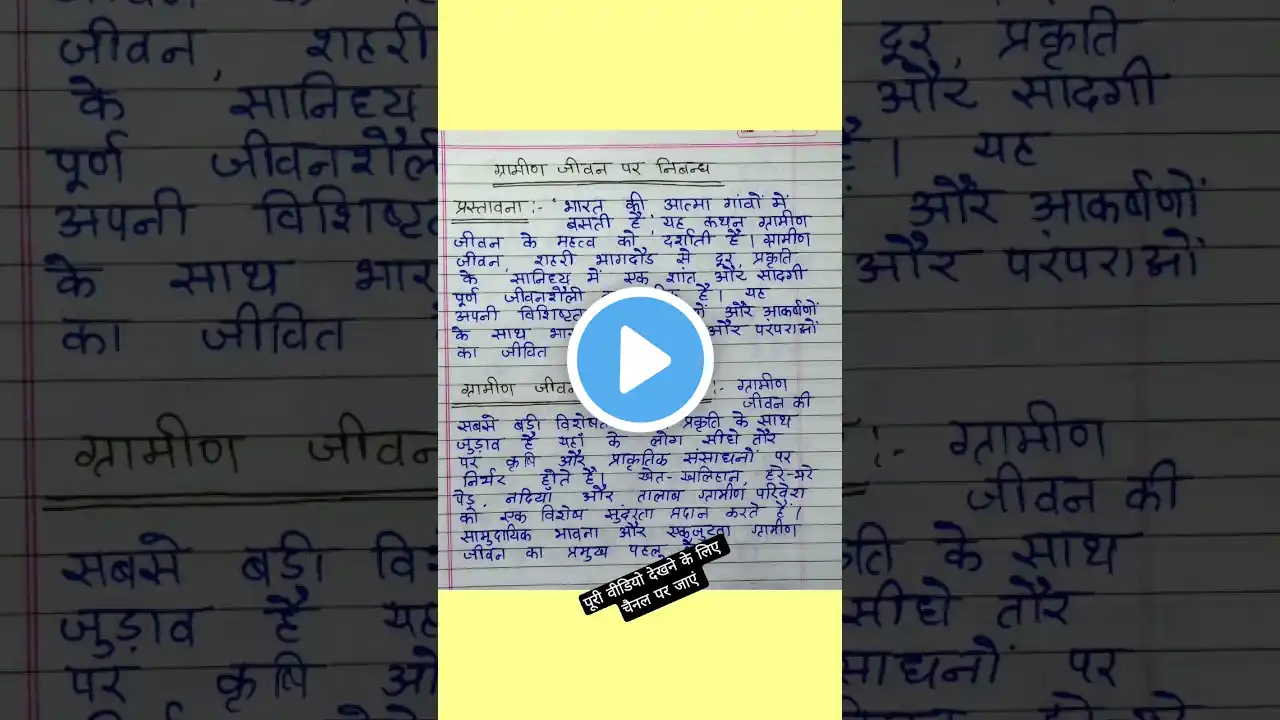 ग्रामीण जीवन पर निबन्ध
प्रस्तावना :- 'भारत की आत्मा गांवों में
बसती है', यह कथन ग्रामीण
जीवन के महत्व को दर्शाती है। ग्रामीण
जीवन, शहरी भागदौड़ से दूर, प्रकृति
के सानिध्य में एक शांत और सादगी
पूर्ण जीवनशैली है। यह
अपनी विशिष्ट और आकर्षणों
के साथ और परंपराओं
का जीवित
ग्रामीण जीवन :- ग्रामीण
जीवन की
सबसे बड़ी प्रकृति के साथ
जुड़ाव है यहाँ के लोग सीधे तौर
पर कृषि और प्राकृतिक संसाधनों पर
निर्भर होते है। खेत-खलिहान, हरे-भरे
पेड़, नदियाँ और तालाब ग्रामीण परिवेश
को एक विशेष सुंदरता प्रदान करते हैं।
सामुदायिक भावना और एकजुटता ग्रामीण
जीवन का प्रमुख पहलू
पूरी वीडियो देखने के लिए
चैनल पर जाएं